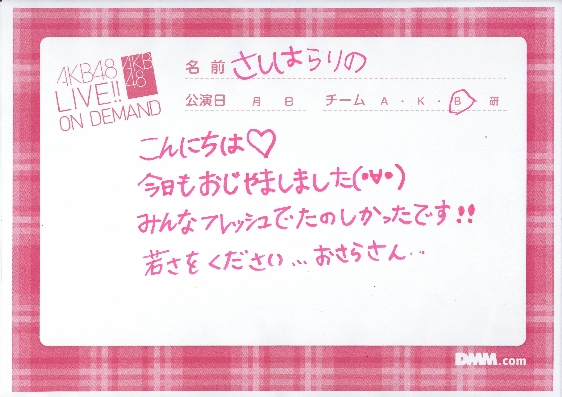 AKB48
LIVE!!
ON DEMAND
AKB
48
名前 さしはらりの
公演日 月 日 チーム A・K・B 研
こんにちは♡
今日もおじゃましました(・∀・)
みんなフレッシュでたのしかったです!!
若さをください... おさらさん...
DMM.com